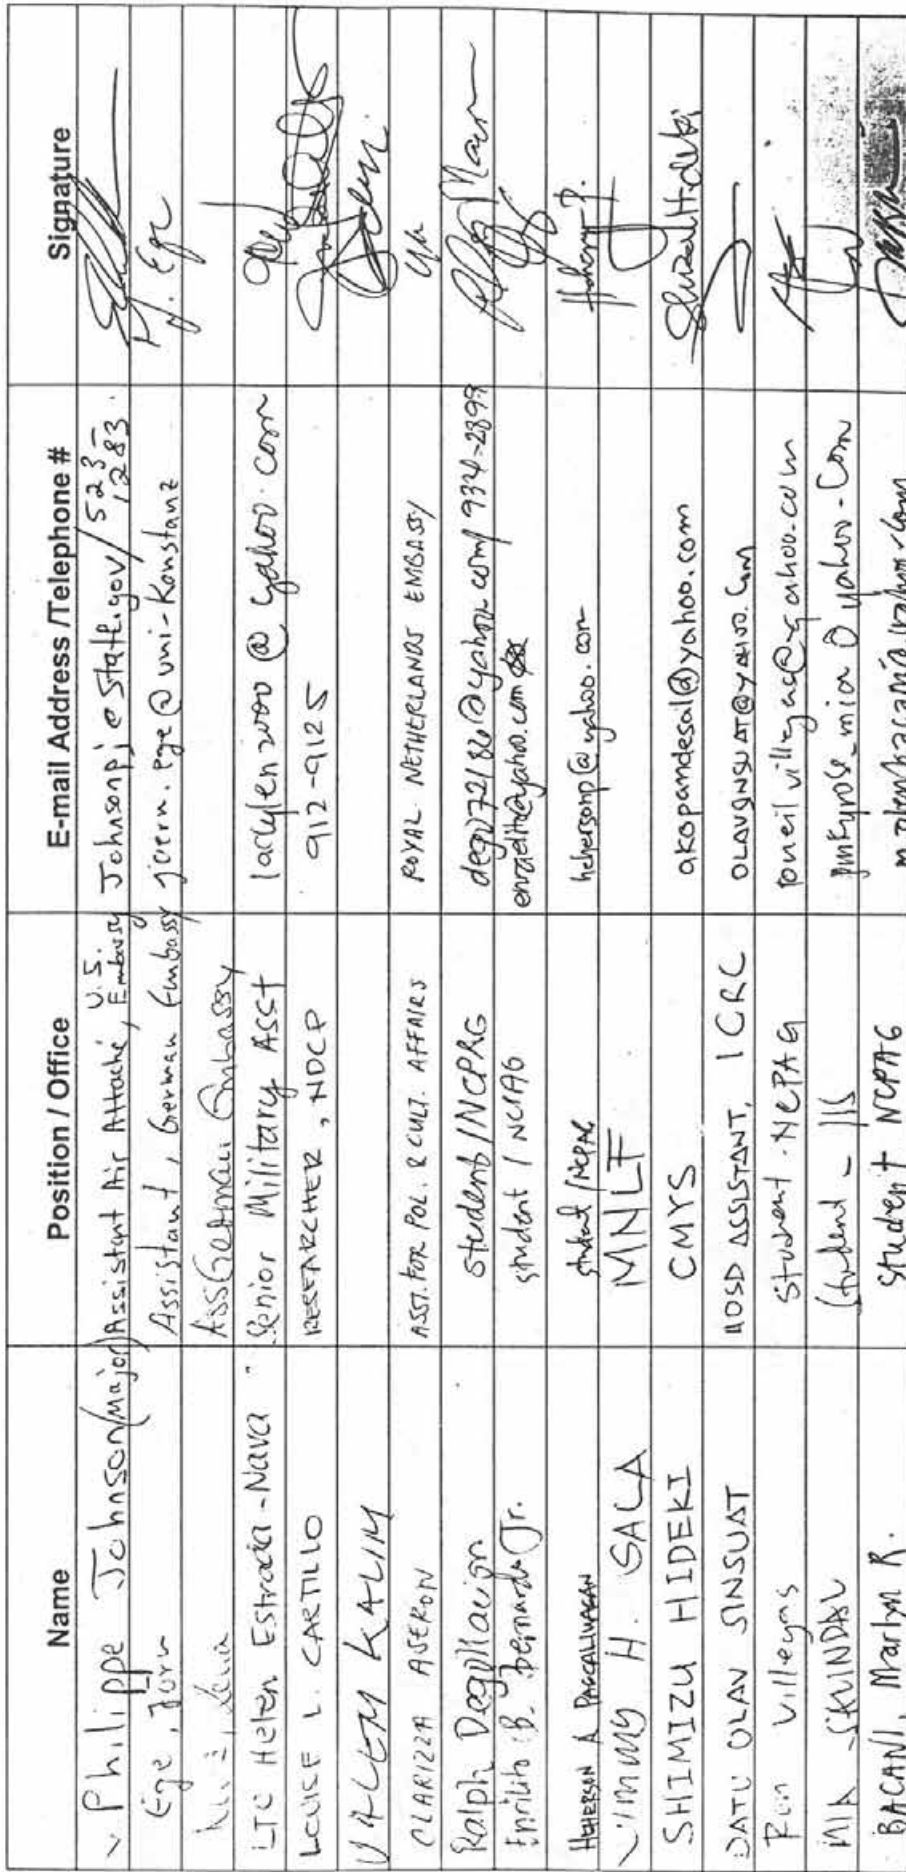 Name Position / Office E-mail Address /Telephone # Signature
Philippe Johnson (Major) Assistant Air Attaché, U.S. Embassy Johnsonpj@state.gov/523-1283.
Ege, Jörn Assistant, German Embassy joern.ege@uni-Konstanz J. Ege
Ass German Embassy
LTC Helen Estrada-Nava Senior Military Asst laclylen2000@yahoo.com
LOUISE L. CARTILLO RESEARCHER, NDCP 912-9125
KALIM
CLARIZZA ASERON ASST. FOR POL. & CULT. AFFAIRS ROYAL NETHERLANDS EMBASSY
Ralph Degollacion student/NCPAG dego72186@yahoo.com/ 934-2899
Enrilito B. Bernardo Jr. student / NCPAG
HEHERSON A student/NCPAG hehersonp@yahoo.com
JIMMY H. SALA MNLF
SHIMIZU HIDEKI CMYS akopandesal@yahoo.com Shimizu Hideki
DATU OLAV SINSUAT ASSISTANT, ICRC OLAVGNSUAT@YAHOO.COM
Ron Villegas Student - NCPAG
MIA student - IIS pinkyrose_mia@yahoo.com
BACANI, Marlyn R. Student NCPAG